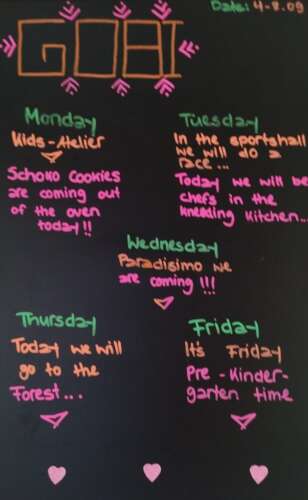 Date: 4-8.09
GOBI
Monday
Kids-Atelier
Schoko Cookies
are coming out
of the oven
today!!
Tuesday
In the sportshall
we will do a
race...
Today we will be
chefs in the
kneading kitchen...
Wednesday
Paradisimo we
are coming!!!
Thursday
Today we will
go to the
Forest...
Friday
It's Friday
Pre-Kinder-
garten time